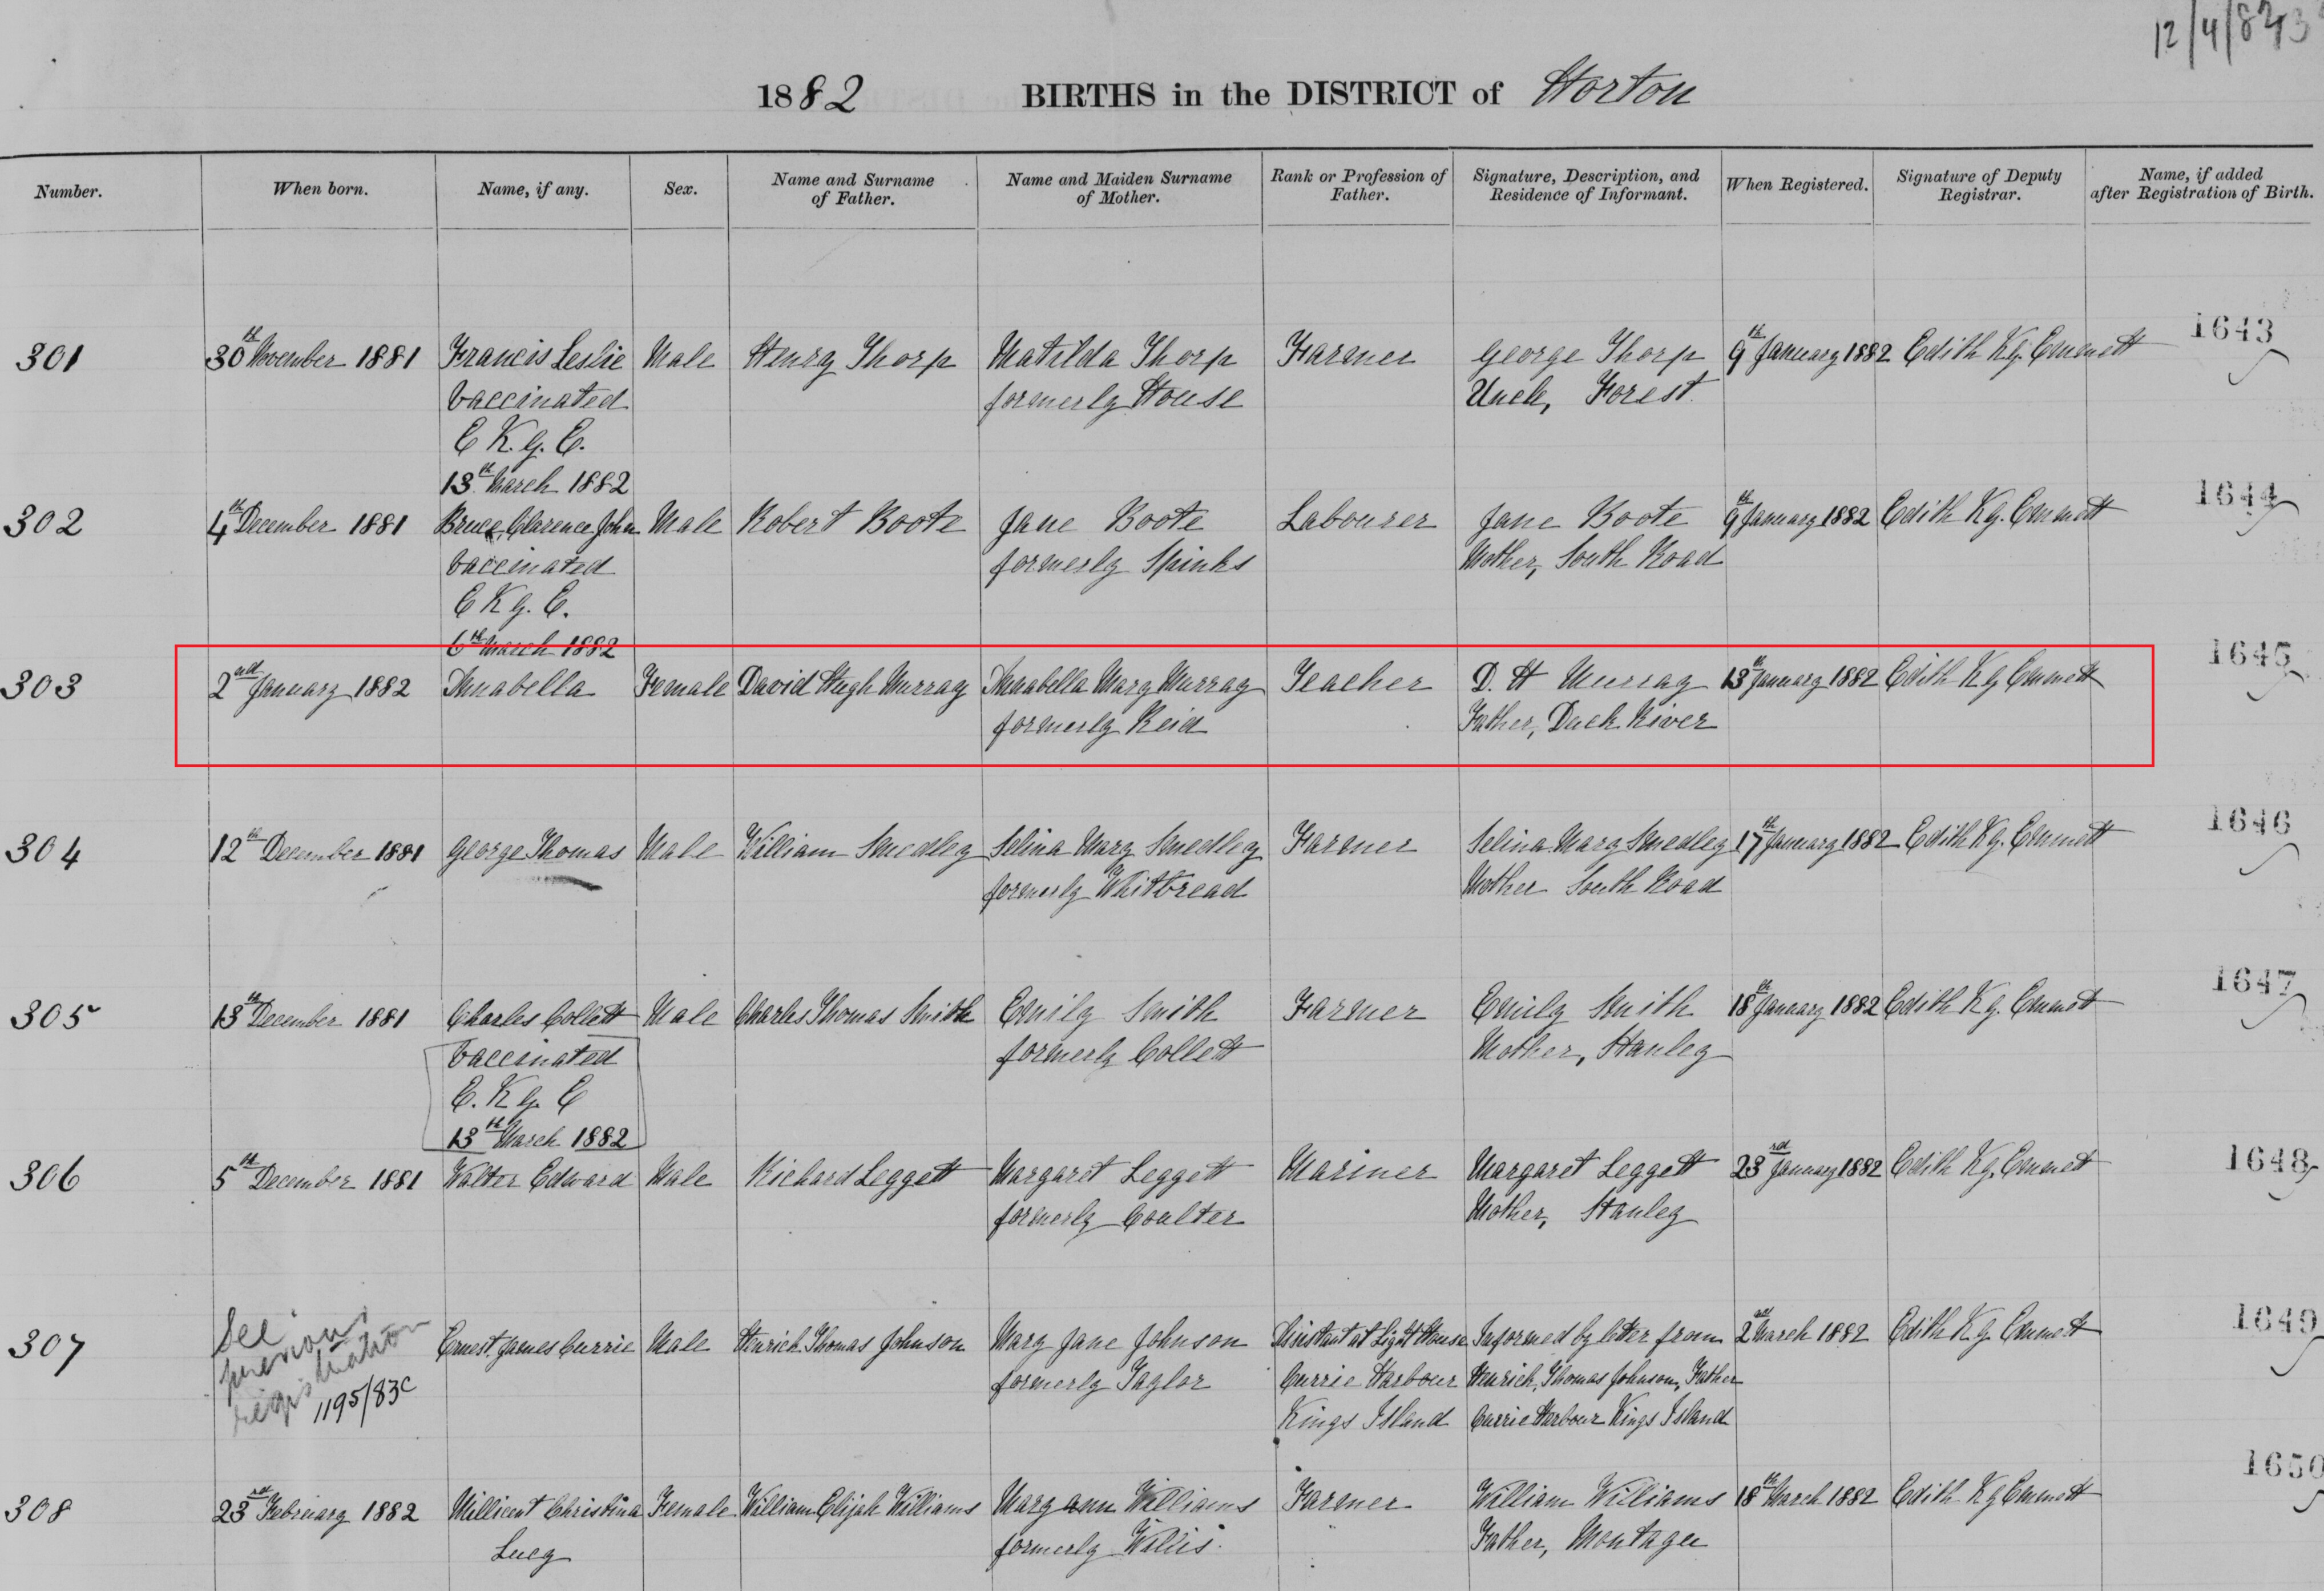 12/4/82
1882 BIRTHS in the DISTRICT of Horton
Number. When born. Name, if any. Sex. Name and Surname of Father. Name and Maiden Surname of Mother. Rank or Profession of Father. Signature, Description, and Residence of Informant. When Registered. Signature of Deputy Registrar. Name, if added after Registration of Birth.
1643
301 30th November 1881 Francis Leslie Male Henry Thorp Matilda Thorp Farmer George Thorp 9th January 1882 Edith K.G. Emmett
vaccinated formerly House Uncle, Forest
E K. G. E.
13th March 1882
1644
302 4th December 1881 Bruce, Clarence John Male Robert Boote Jane Boote Labourer Jane Boote 9th January 1882 Edith K G. Emmett
vaccinated formerly Spinks Mother, South Road
E K G. E.
6th March 1882
1645
303 2nd January 1882 Annabella Female David Hugh Murray Annabella Mary Murray Teacher D. H Murray 13th January 1882 Edith K G Emmett
formerly Reid Father, Duck River
1646
304 12th December 1881 George Thomas Male William Smedley Selina Mary Smedley Farmer Selina Mary Smedley 17th January 1882 Edith K G. Emmett
formerly Whitbread Mother South Road
1647
305 13th December 1881 Charles Collett Male Charles Thomas Smith Emily Smith Farmer Emily Smith 18th January 1882 Edith K G. Emmett
vaccinated formerly Collett Mother, Stanley
E. K G. E
13th March 1882
1648
306 5th December 1881 Walter Edward Male Richard Leggett Margaret Leggett Mariner Margaret Leggett 23rd January 1882 Edith K G. Emmett
formerly Coulter Mother, Stanley
1649
307 See previous registration 1195/83c Ernest James Currie Male Henrich Thomas Johnson Mary Jane Johnson Assistant at Light House Informed by letter from 2nd March 1882 Edith K G Emmett
formerly Taylor Currie Harbour Henrich, Thomas Johnson, Father
Kings Island Currie Harbour Kings Island
1650
308 23rd February 1882 Millicent Christina Female William Elijah Williams Mary ann Williams Farmer William Williams 18th March 1882 Edith K G Emmett
Lucy formerly Willis. Father, Montagu